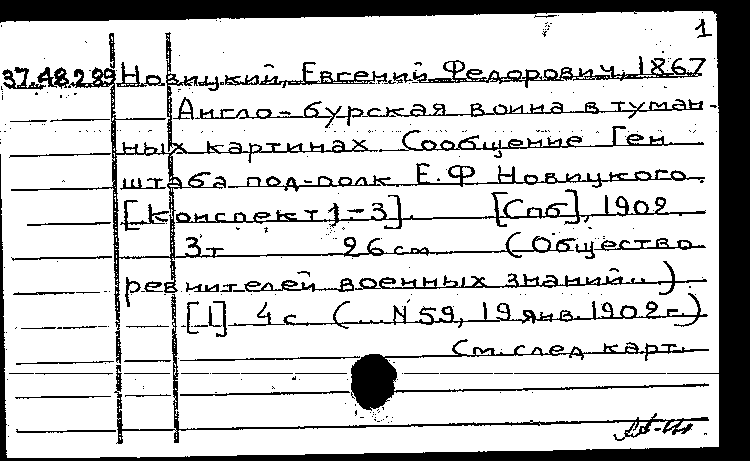 1
37.48.289 Новицкий, Евгений Федорович, 1867
Англо-бурская воина в туман-
ных картинах. Сообщение Ген.
штаба под-полк. Е.Ф Новицкого.
[Конспект 1-3]. [Спб], 1902.
3т 26 см (Общество
ревнителей военных знаний...)
[1] 4 с (... N 59, 19 янв. 1902 г.)
См. след карт.